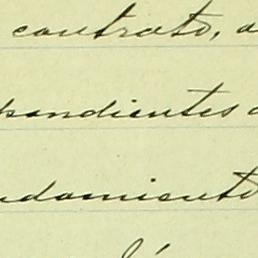 contrato, a
pondientes
damiento